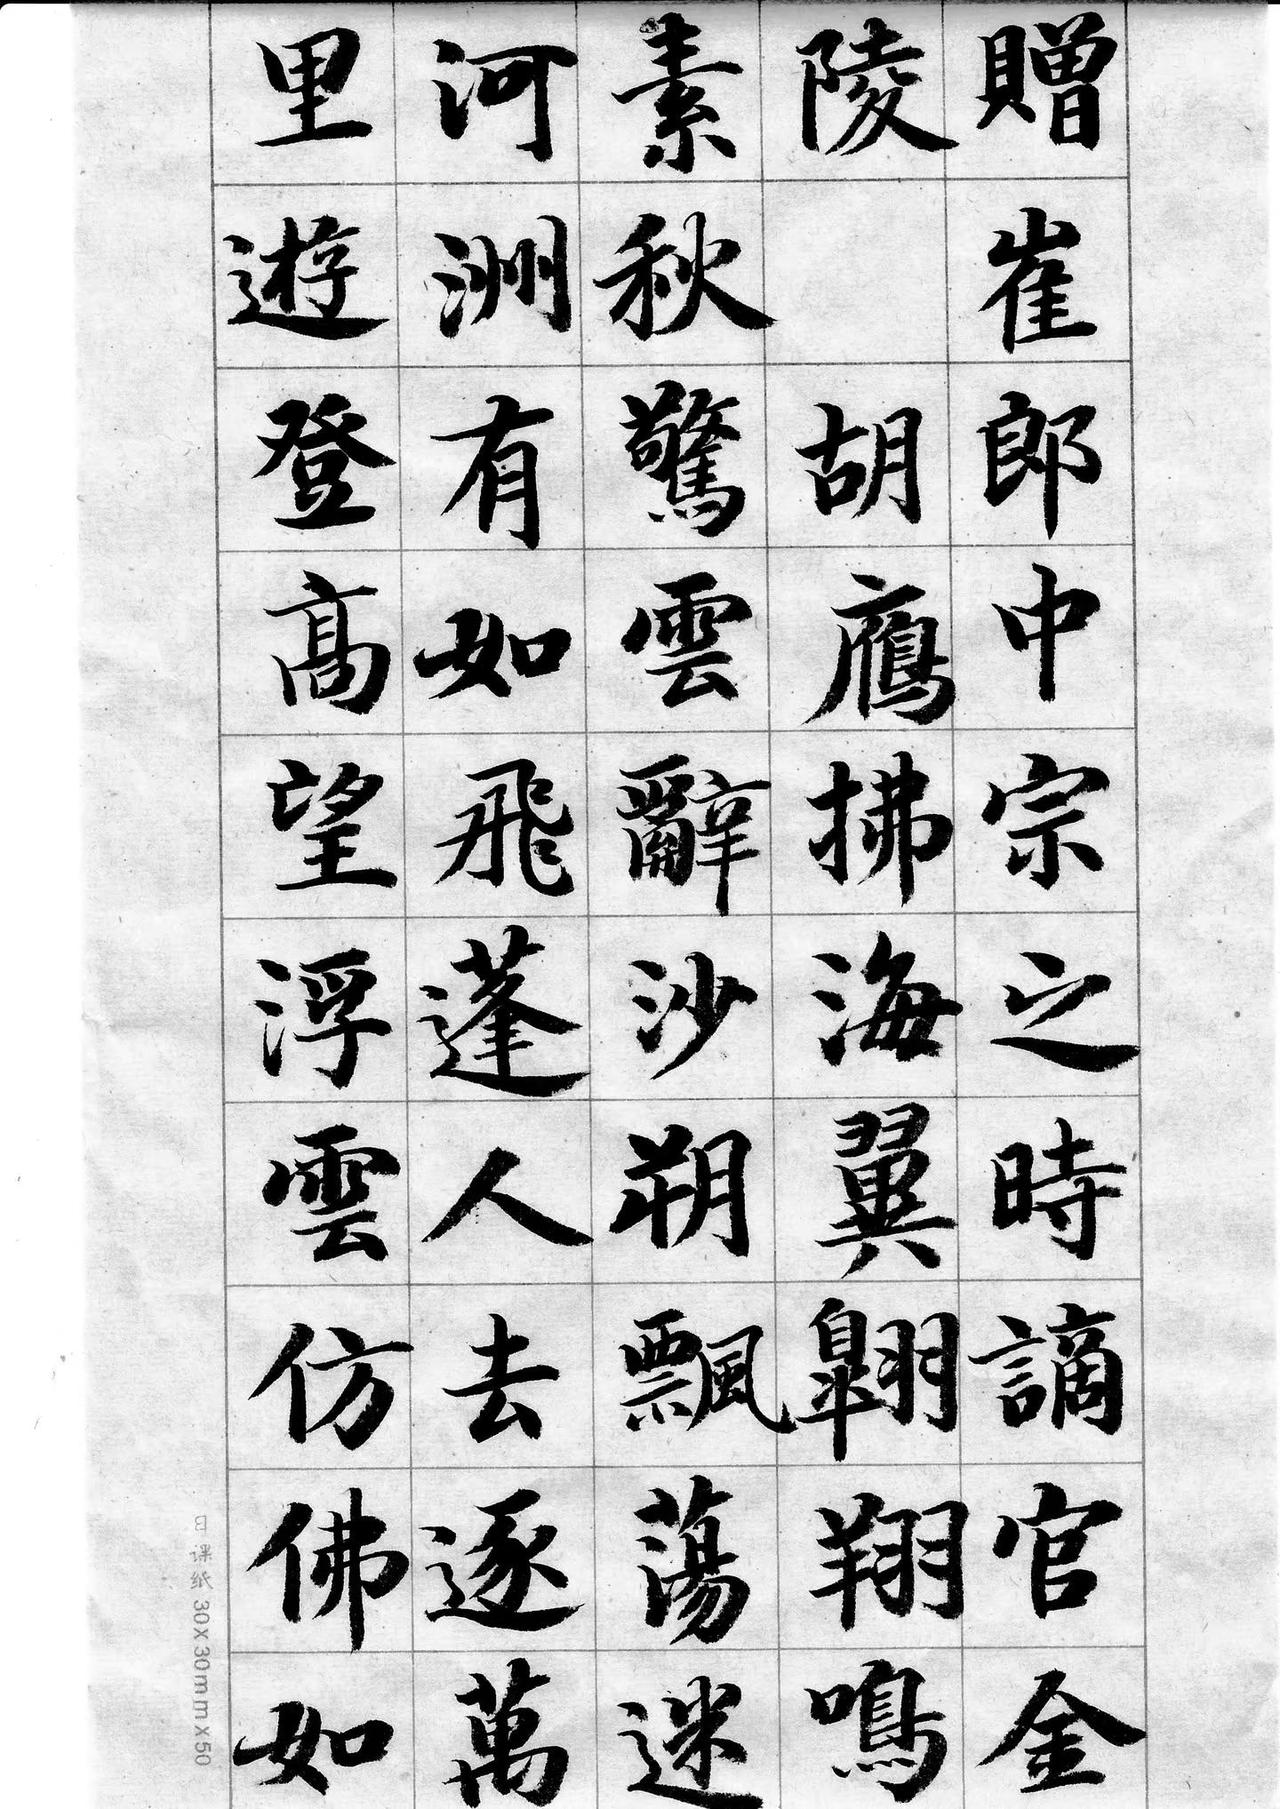 贈崔郎中宗之時謫官金
陵 胡鷹拂海翼翺翔鳴
素秋驚雲辭沙朔飄蕩迷
河洲有如飛蓬人去逐萬
里遊登高望浮雲仿佛如
日课纸 30x30mmx50